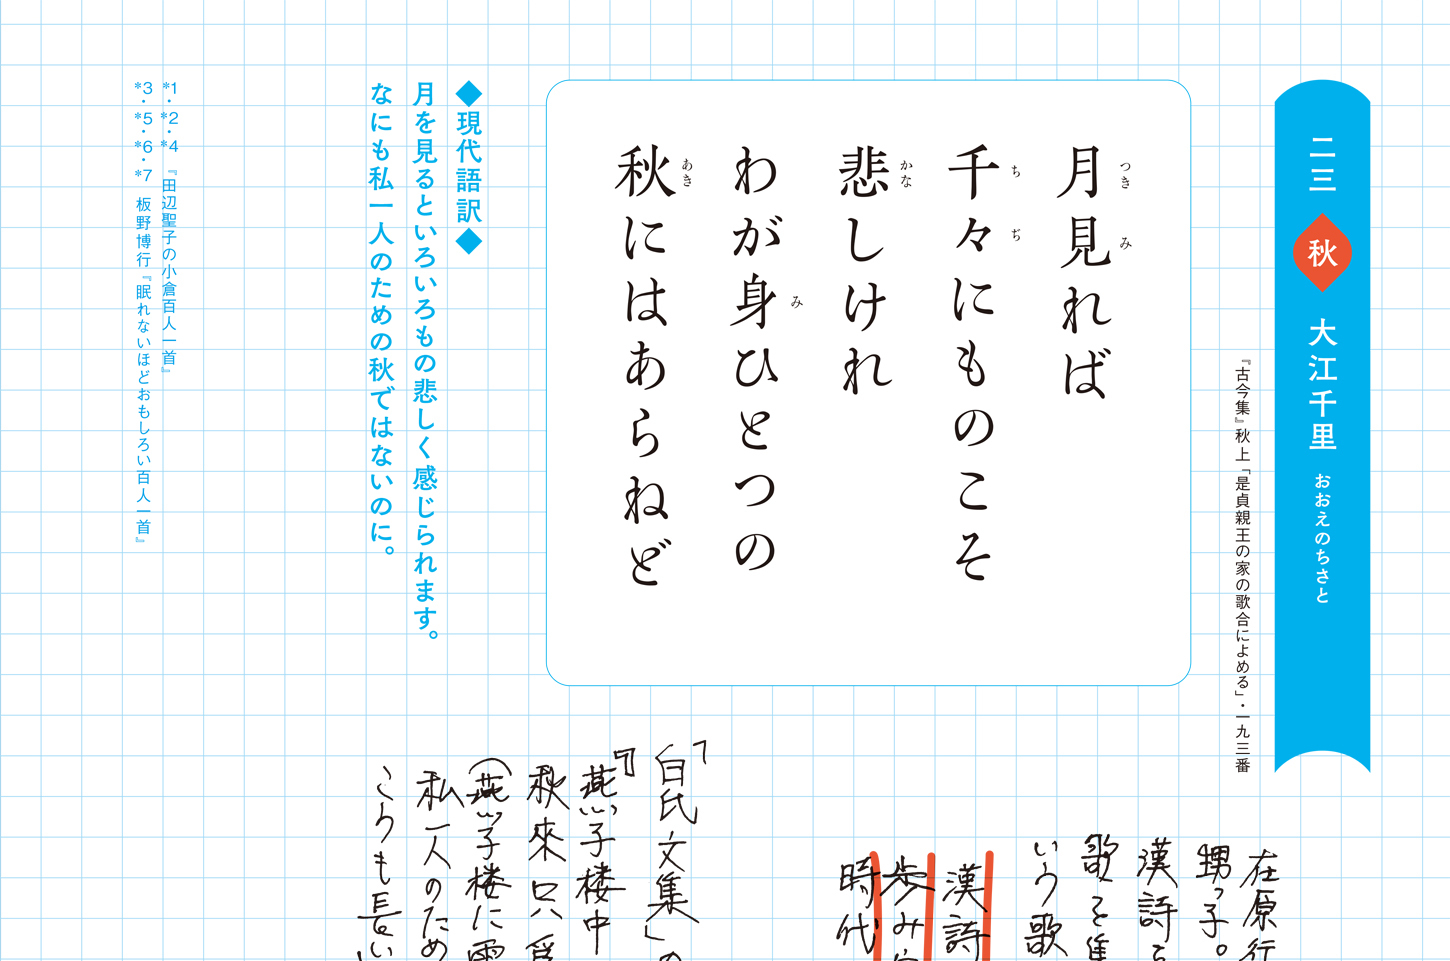 二三 秋 大江千里 おおえのちさと
『古今集』秋上「是貞親王の家の歌合によめる」・一九三番
月見れば
つき み
千々にものこそ
ち ぢ
悲しけれ
かな
わが身ひとつの
み
秋にはあらねど
あき
◆現代語訳◆
月を見るといろいろもの悲しく感じられます。
なにも私一人のための秋ではないのに。
*1・*2・*4 『田辺聖子の小倉百人一首』
*3・*5・*6・*7 板野博行『眠れないほどおもしろい百人一首』
在原行
甥っ子。
漢詩を
歌を集
いう歌
漢詩
歩み
時代
「白氏文集」の
『燕子楼中
秋來只爲
(燕子楼に霜
私一人のため
こうも長い